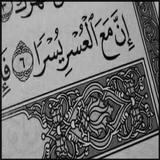 إِنَّ مَعَ الْعُسْرِ يُسْرًا ٦ فَإِ